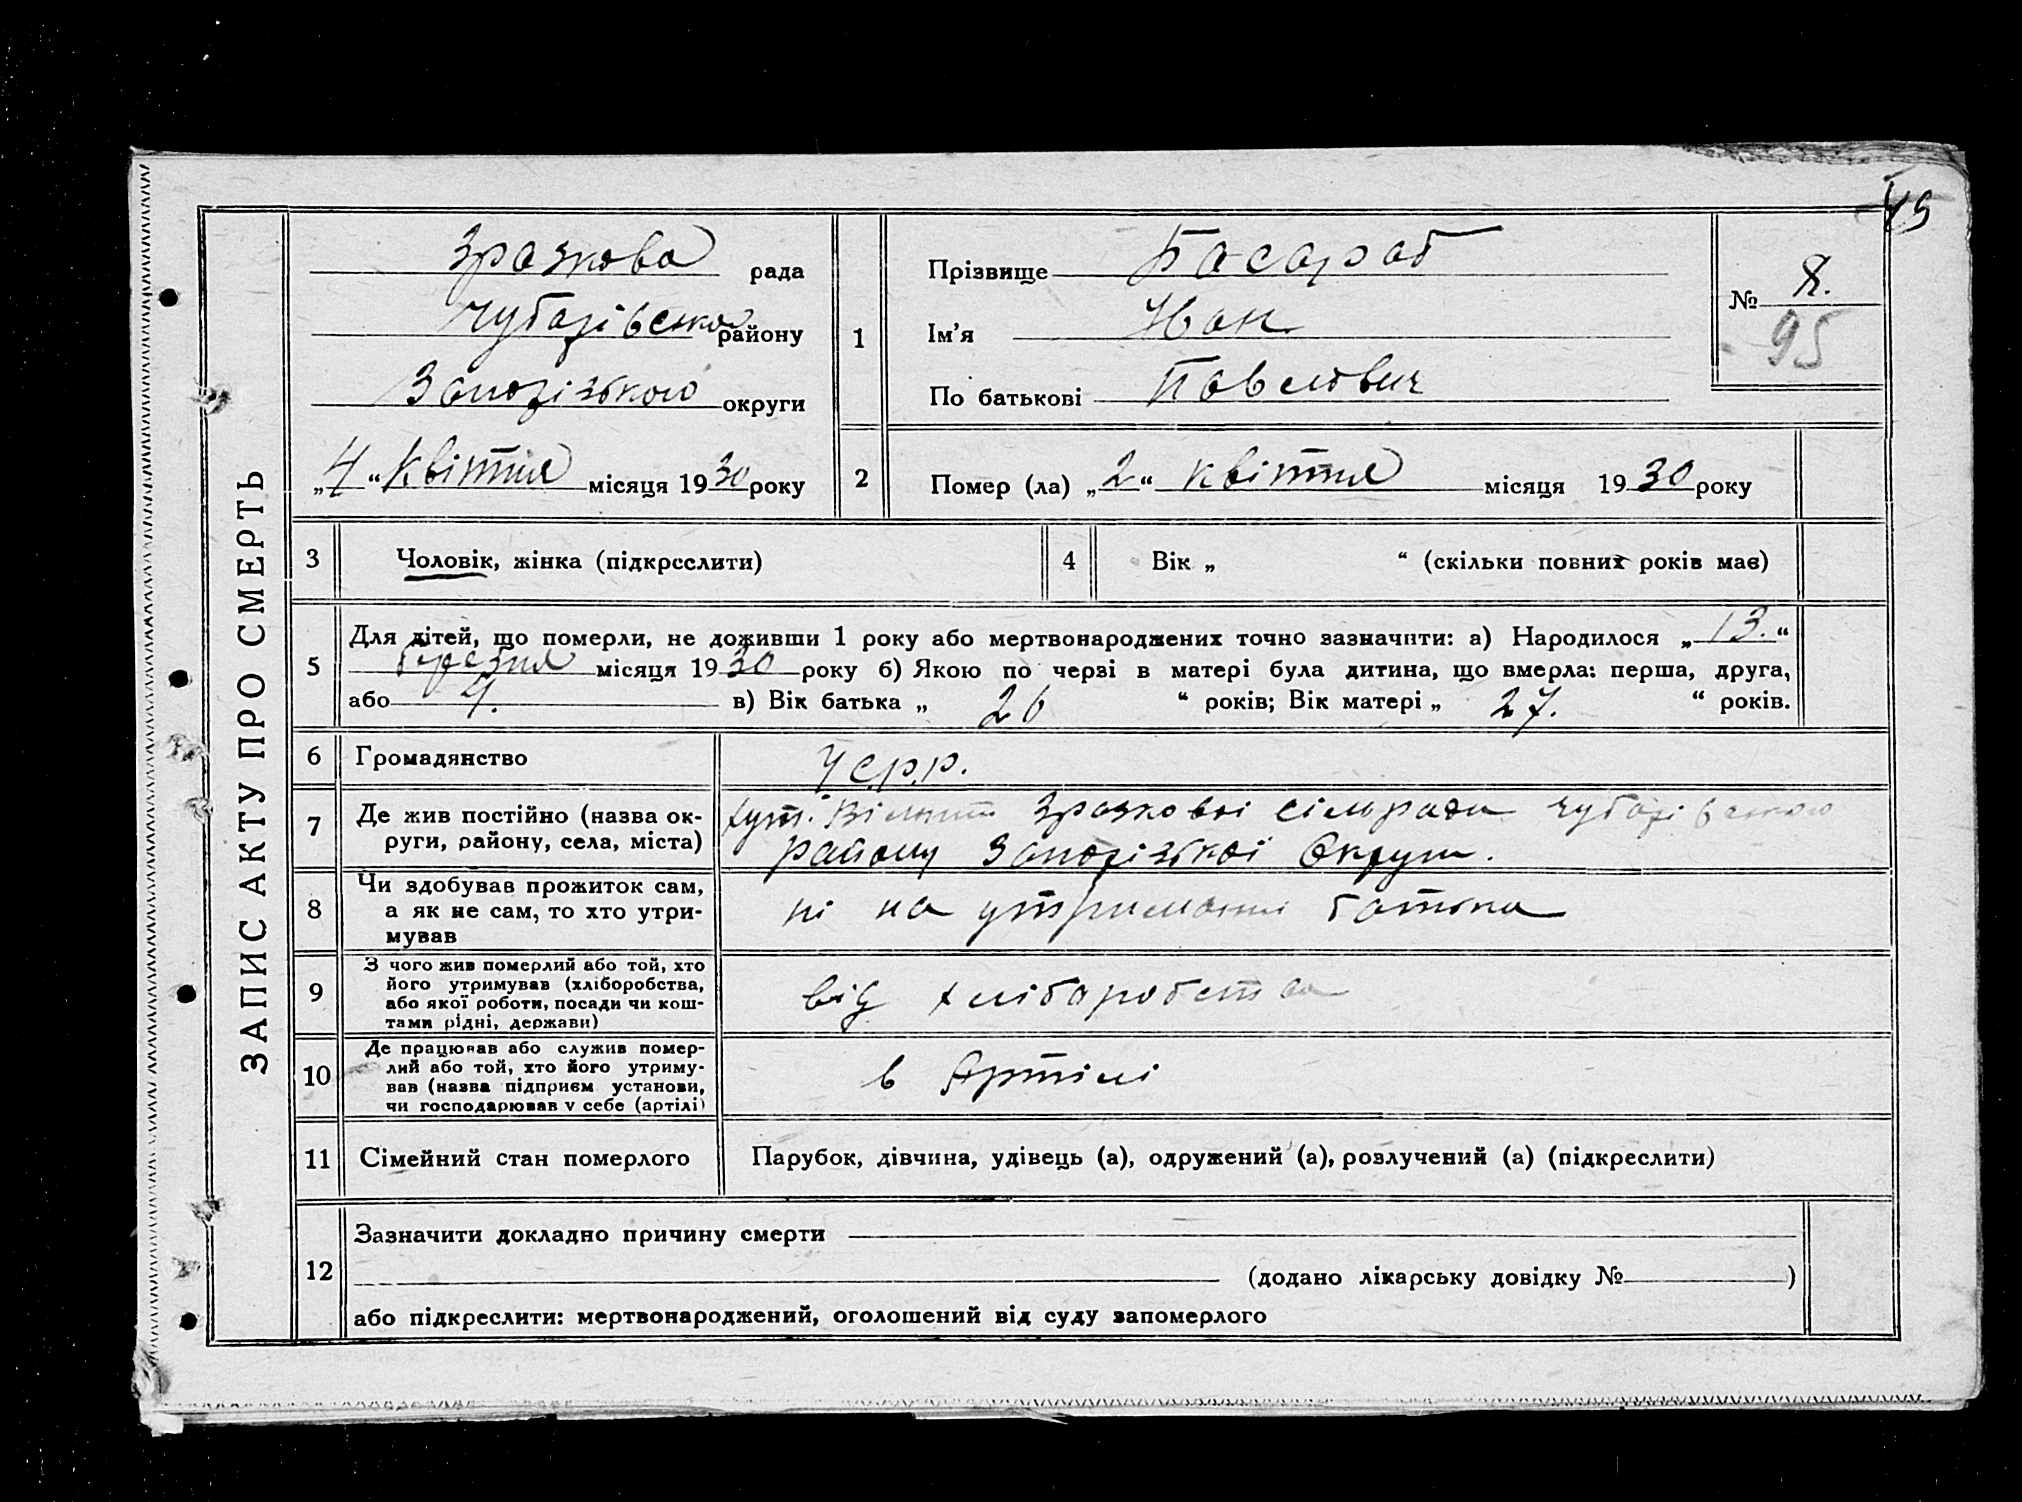 49
ЗАПИС АКТУ ПРО СМЕРТЬ
Зразкова рада
Чубарівського району
Запорізького округи
„4“ Квітня місяця 1930 року
1
Прізвище Басараб
Ім'я Иван
По батькові Павлович
№ 8.
95
2
Помер (ла) „2“ квітня місяця 1930 року
3
Чоловік, жінка (підкреслити)
4
Вік „ “ (скільки повних років має)
5
Для дітей, що померли, не доживши 1 року або мертвонароджених точно зазначити: а) Народилося „13.“
березня місяця 1930 року б) Якою по черзі в матері була дитина, що вмерла: перша, друга,
або 4. в) Вік батька „ 26 “ років; Вік матері „ 27. “ років.
6
Громадянство
УСРР.
7
Де жив постійно (назва ок-
руги, району, села, міста)
хут. Зразкової сільради Чубарівського
району Запорізької Округи.
8
Чи здобував прожиток сам,
а як не сам, то хто утри-
мував
ні на утриманні батька
9
З чого жив померлий або той, хто
його утримував (хліборобства,
або якої роботи, посади чи кош-
тами рідні, держави)
від хліборобства
10
Де працював або служив помер-
лий або той, хто його утриму-
вав (назва підприєм установи,
чи господарював у себе (артілі)
в Артілі
11
Сімейний стан померлого
Парубок, дівчина, удівець (а), одружений (а), розлучений (а) (підкреслити)
12
Зазначити докладно причину смерти
(додано лікарську довідку № )
або підкреслити: мертвонароджений, оголошений від суду запомерлого